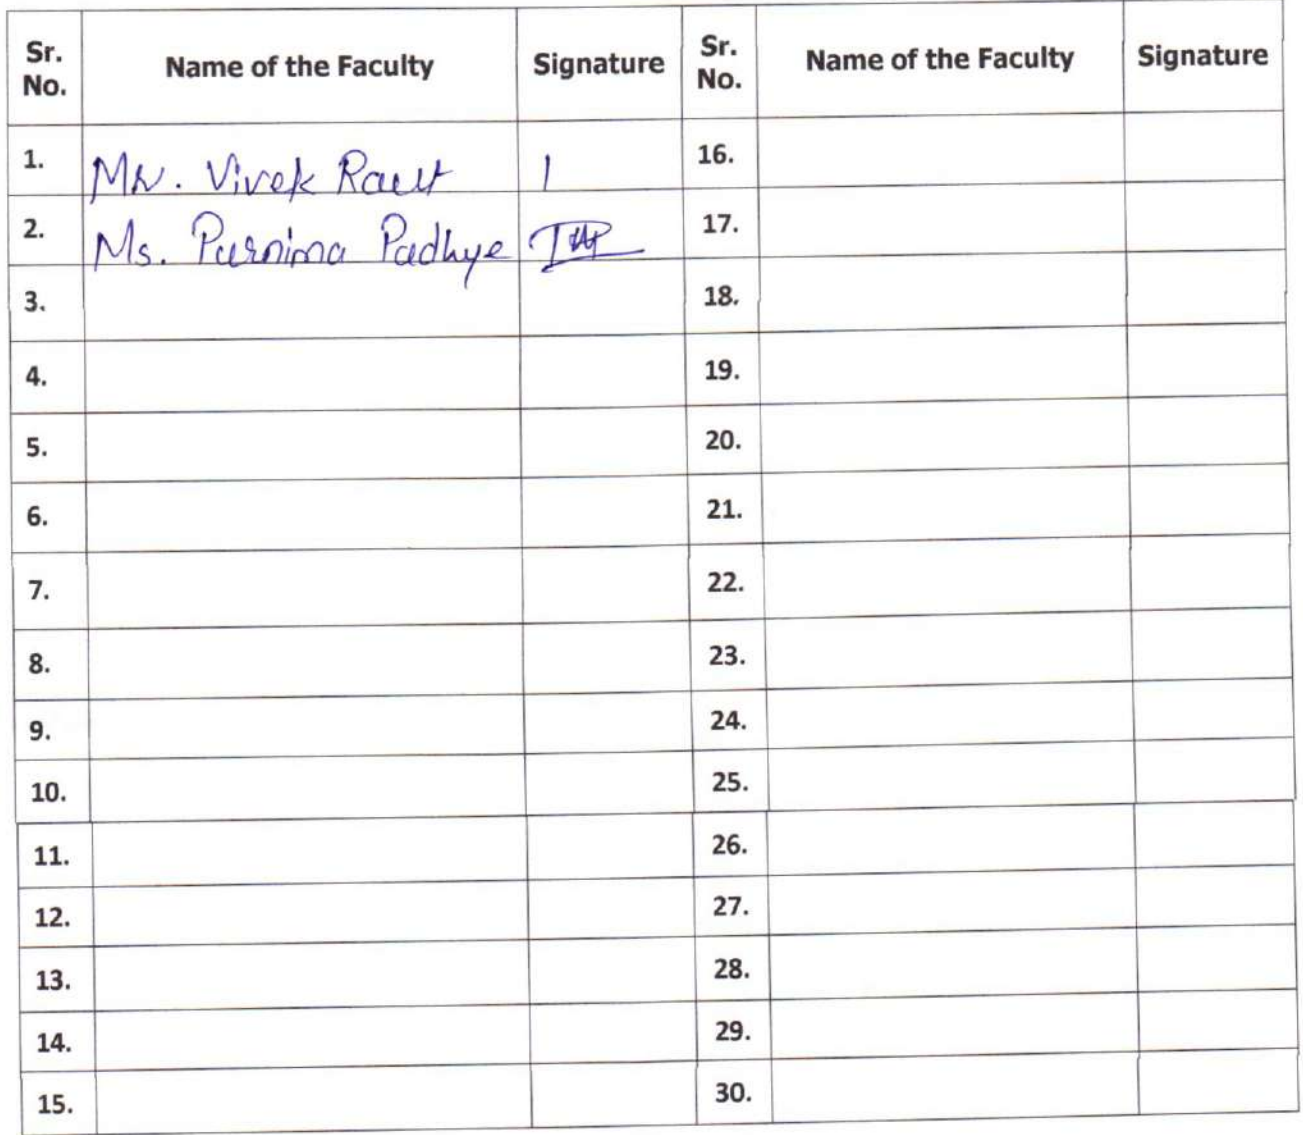 Sr. No. Name of the Faculty Signature Sr. No. Name of the Faculty Signature
1. Mr. Vivek Raut 16.
2. Ms. Purnima Padhye 17.
3. 18.
4. 19.
5. 20.
6. 21.
7. 22.
8. 23.
9. 24.
10. 25.
11. 26.
12. 27.
13. 28.
14. 29.
15. 30.